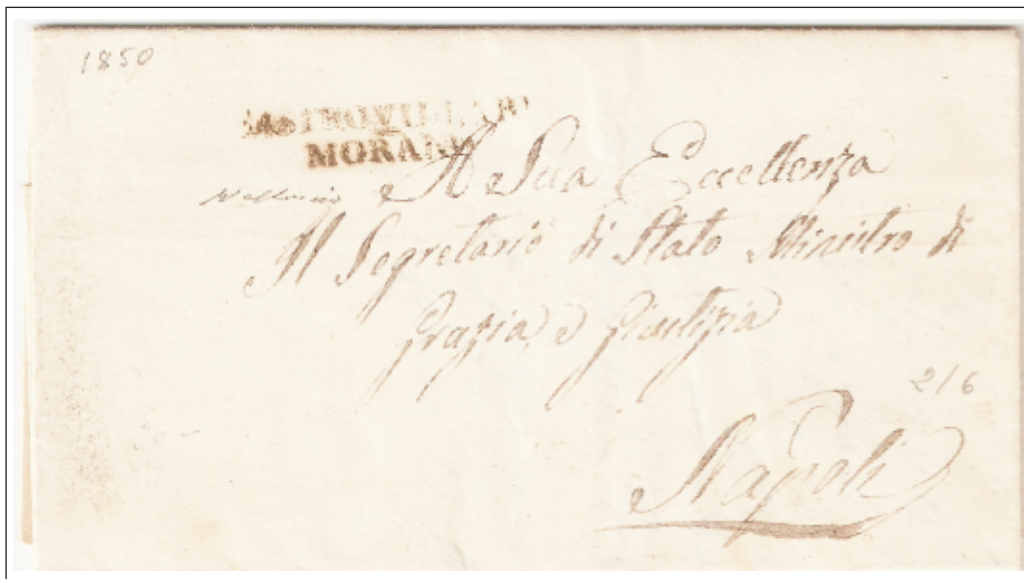 1850
CASTROVILLARI
MORANO
A Sua Eccellenza
Il Segretario di Stato Ministro di
Grazia, e Giustizia
2/6
Napoli